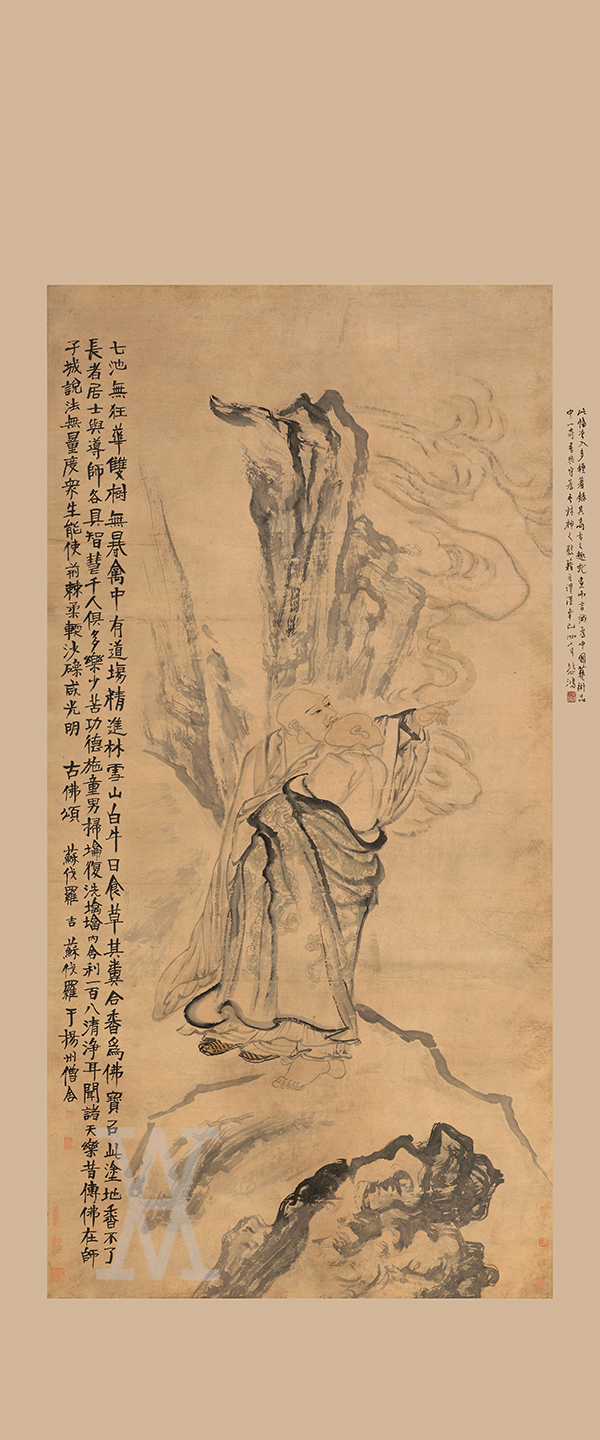 多種著錄其高古之趣
中國藝術品
七池無狂華雙樹無暴禽中有道塲精進林雪山白牛日食草其糞合香爲佛寶召此塗地香不了
長者居士與導師各具智慧千人俱多樂少苦功德施童男掃墖復洗墖墖內舍利一百八清淨耳聞諸天樂昔傳佛在師
子城說法無量度衆生能使荊棘柔輭沙礫咸光明 古佛頌 蘇伐羅吉蘇伐羅于揚州僧舍